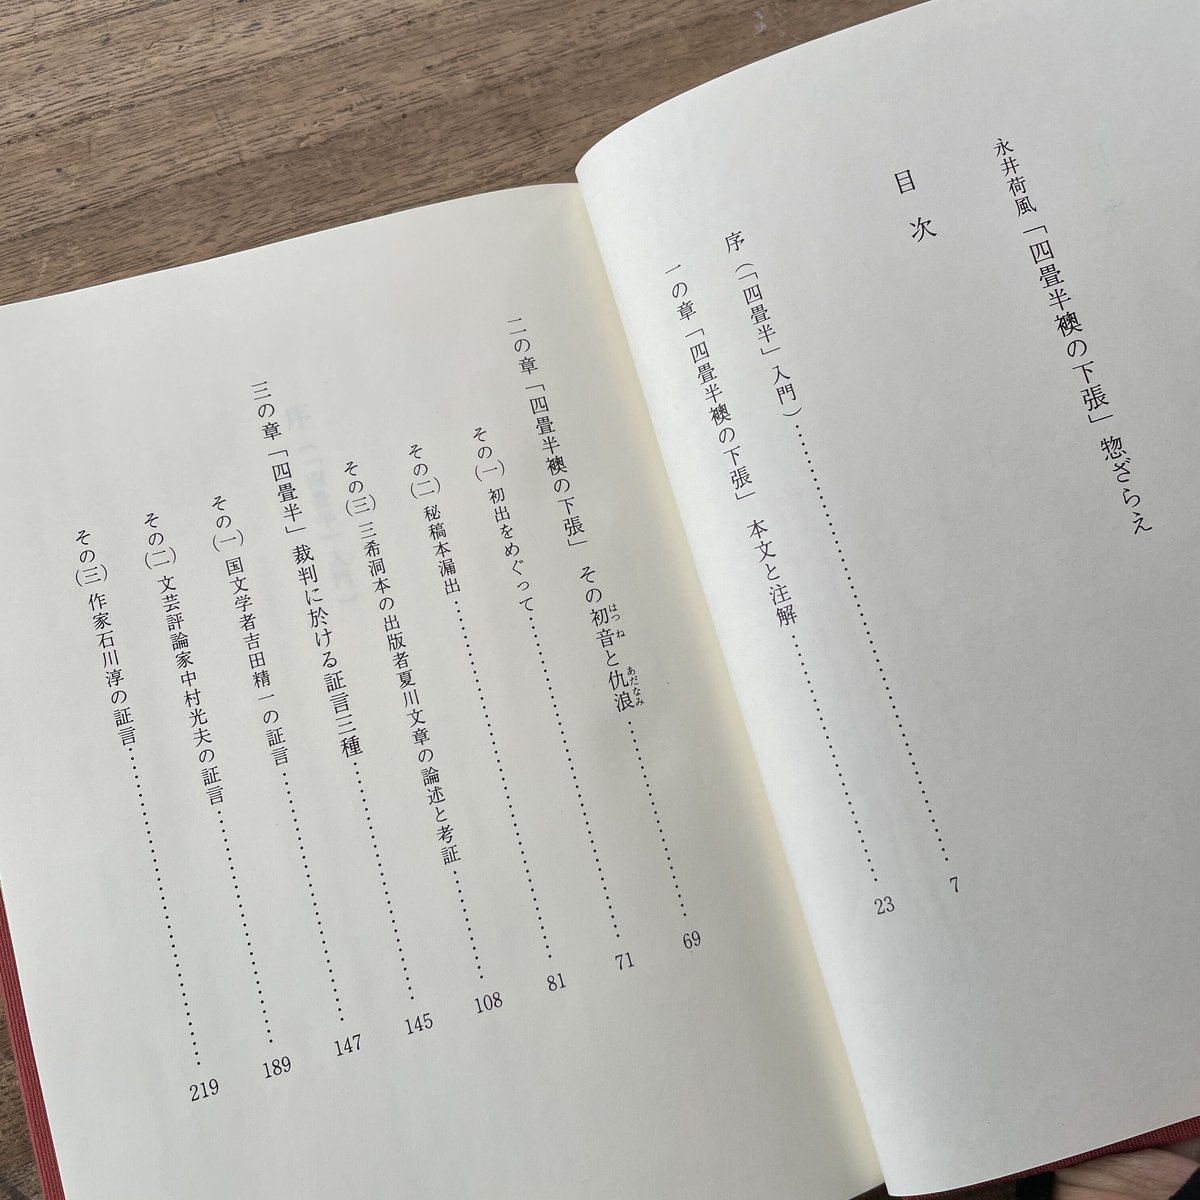 永井荷風「四畳半襖の下張」惣ざらえ
目次
序(「四畳半」入門)……………………7
一の章「四畳半襖の下張」本文と注解……………………23
二の章「四畳半襖の下張」その初音と仇浪……………………69
はつね
あだなみ
その(一) 初出をめぐって……………………71
その(二) 秘稿本漏出……………………81
その(三) 三希洞本の出版者夏川文章の論述と考証……………………108
三の章「四畳半」裁判に於ける証言三種……………………145
その(一) 国文学者吉田精一の証言……………………147
その(二) 文芸評論家中村光夫の証言……………………189
その(三) 作家石川淳の証言……………………219